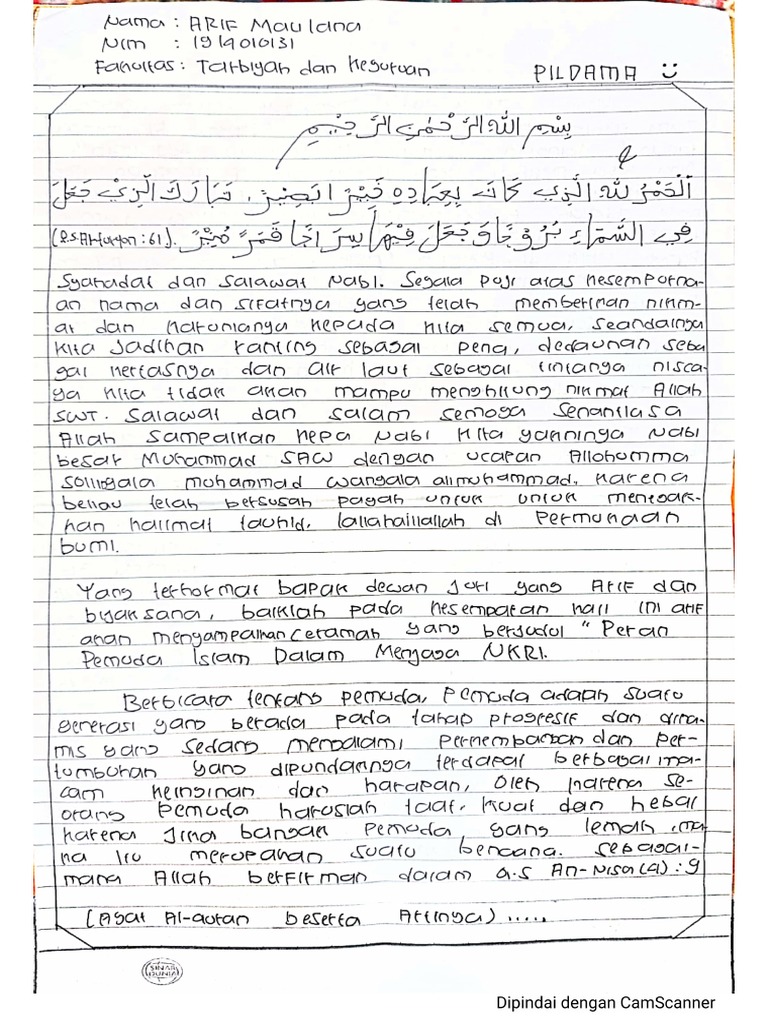 Nama : ARIF Maulana
Nim : 1919010131
Fakultas : Tarbiyah dan Keguruan
PILDAMA
بِسْمِ اللهِ الرَّحْمٰنِ الرَّحِيْمِ
اَلْحَمْدُ لِلّٰهِ الَّذِي كَانَ بِعِبَادِهِ خَبِيْرً ابَصِيْرً، تَبَارَكَ الَّذِيْ جَعَلَ
فِي السَّمَاءِ بُرُوْجًا وَجَعَلَ فِيْهَا سِرَاجًا قَمَرً مُنِيْرً. (Q.S Al-furqon : 61)
Syahadat dan Salawat Nabi. Segala puji atas kesempurna-
an nama dan sifatnya yang telah memberikan nikm-
at dan karunianya kepada kita semua, seandainya
kita jadikan ranting sebagai pena, dedaunan seba
gai kertasnya dan air laut sebagai tintanya nisca-
ya kita tidak akan mampu menghitung nikmat Allah
SWT. Salawat dan salam semoga senantiasa
Allah sampaikan kepa Nabi kita yakninya Nabi
besar Muhammad SAW dengan ucapan Allohumma
sollingala muhammad wangala alimuhammad. karena
beliau telah bersusah payah untuk untuk menegak-
kan kalimat tauhid, lailahaillallah di Permukaan
bumi.
Yang terhormat bapak dewan Juri yang Arif dan
bijaksana, baiklah pada kesempatan kali ini arif
akan menyampaikan ceramah yang berjudul " Peran
Pemuda Islam Dalam Menjaga NKRI.
Berbicara tentang pemuda, Pemuda adaah suatu
generasi yang berada pada tahap progresif dan dina-
mis yang sedang mengalami Perkembangan dan per-
tumbuhan yang dipundaknya terdapat berbagai ma-
cam keinginan dan harapan, Oleh karena se-
orang Pemuda haruslah taat, kuat dan hebat
karena Jika bangsan Pemuda yang lemah ,ma-
ka itu merupakan suatu bencana. sebagai-
mana Allah berfirman dalam Q.S An-Nisa (4) : 9
(Ayat Al-quran beserta Artinya) .....
SINAR
DUNIA
Dipindai dengan CamScanner